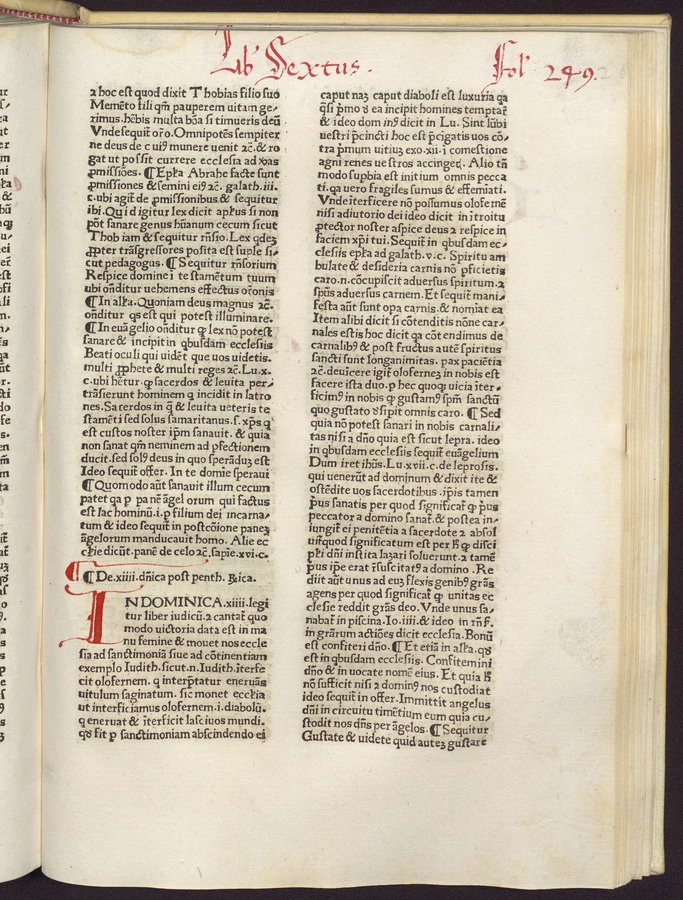 Lib' Sextus.
Fol' 249.
ꝛ hoc est quod dixit Thobias filio suo
Memẽto fili qm̃ pauperem uitam ge-
rimus. hẽbis multa bõa si timueris deũ
Vnde sequit̃ or̃o. Omnipotẽs sempiter
ne deus de c uiꝰ munere uenit ꝛc̃. & ro
gat ut possit currere ecclesia ad
ꝓmissiões. ¶ Ep̃ka Abrahe facte sunt
ꝓmissiones & semini eiꝰ ꝛc̃. galath. iii.
c. ubi agit̃ de ꝓmissionibus & sequitur
ibi. Qui d igitur lex dicit ap̃lus si non
põt sanare genus hũanum cecum sicut
Thob iam & sequitur rñsio. Lex
ꝓpter trãsgressores posita est
cut pedagogus. ¶ Sequitur rñsorium
Respice domine i testamẽtum tuum
ubi onditur uehemens effectus orõnis
¶ In alr̃a. Quoniam deus magnus ꝛc̃.
onditur qs est qui potest illuminare.
¶ In euãgelio onditur ꝙ lex nõ potest
sanare & incipit in qbusdam ecclesiis
Beati oculi qui uidẽt que uos uidetis.
multi ꝓphete & multi reges ꝛc̃. Lu. x.
c. ubi hẽtur. ꝙ sacerdos & leuita per-
trãsierunt hominem q incidit in latro
nes. Sacerdos in q̃ & leuita ueteris te
stamẽti sed solus samaritanus. s. xp̃s q
est custos noster ip̃m sanauit. & quia
non sanat qm̃ neminem ad ꝑfectionem
ducit. sed solꝰ deus in quo sperãdũ est
Ideo sequit̃ offer. In te domie speraui
¶ Quomodo aũt sanauit illum cecum
patet qa ꝑ panẽ ãgel orum qui factus
est lac hominũ. i. ꝑ filium dei incarna-
tum & ideo sequit̃ in postcõione paneꝫ
ãgelorum manducauit homo. Alie ec
cl̃ie dicũt. panẽ de celo ꝛc̃. sapie. xvi. c.
¶ De. xiiii. dñica post penth. Rica.
IN DOMINICA. xiiii. legi
tur liber iudicũ. ꝛ cantat̃ quo
modo uictoria data est in ma
nu femine & mouet nos eccle
sia ad sanctimoniã siue ad cõtinentiam
exemplo Iudith. sicut. n. Iudith. ĩterfe
cit olofernem. q interp̃tatur eneruãs
uitulum saginatum. sic monet eccl̃ia
ut interficiamus olofernem. i. diabolũ.
q eneruat & ĩterficit lasc iuos mundi.
fit ꝑ sanctimoniam abscindendo ei
caput naꝫ caput diaboli est luxuria qa
qsi p̃mo ea incipit homines temptar̃
& ideo dom inꝰ dicit in Lu. Sint lũbi
uestri p̃cincti hoc est p̃cigatis uos cõ-
tra p̃mum uitiuꝫ exo. xii. i comestione
agni renes ue stros accingetꝫ. Alio tñ
modo supbia est initium omnis pecca
ti. qa uero fragiles sumus & effemiati.
Vnde ĩterficere nõ possumus oloferñe
nisi adiutorio dei ideo dicit in ĩtroitu
ꝓtector noster aspice deus ꝛ respice in
faciem xp̃i tui. Sequit̃ in qbusdam ec-
clesiis ep̃ka ad galath. v. c. Spiritu am
bulate & desideria carnis nõ ꝑficietis
caro. n. cõcupiscit aduersus spiritum. ꝛ
sp̃us aduersus carnem. Et sequit̃ mani-
festa aũt sunt opa carnis. & nomiat ea
Item alibi dicit si cõtenditis nõne car-
nales estis hoc dicit qa cõtendimus de
carnalibꝰ & post fructus autẽ spiritus
sancti sunt longanimitas. pax paciẽtia
ꝛc̃. deuĩcere igit̃ oloferneꝫ in nobis est
facere ista duo. ꝑ hec quoqꝫ uicia ĩter-
ficimꝰ in nobis ꝙ gustamꝰ sp̃m sanctũ
quo gustato sipit omnis caro. ¶ Sed
quia nõ potest sanari in nobis carnali-
tas nisi a dño quia est sicut lepra. ideo
in qbusdam ecclesiis sequit̃ euãgelium
Dum iret ih̃us. Lu. xvii. c. de leprosis.
qui uenerũt ad dominum & dixit ite &
ostẽdite uos sacerdotibus. ip̃is tamen
p̃us sanatis per quod significat̃ ꝙ p̃us
peccator a domino sanat̃. & postea in-
iungit̃ ei penitẽtia a sacerdote ꝛ absol
uit̃ quod significatum est per ꝙ disci
pl̃i dñi instita lazari soluerunt. ꝛ tamẽ
p̃us ip̃e erat r̃suscitatꝰ a domino. Re
diit aũt unus ad euꝫ flexis genibꝰ gras̃
agens per quod significat̃ ꝙ unitas ec
clesie reddit gras̃ deo. Vnde unus sa-
nabat̃ in piscina. Io. iiii. & ideo in rñ.
in grãrum actiões dicit ecclesia. Bonũ
est confiteri dño. ¶ Et etiã in alr̃a.
est in qbusdam ecclesiis. Confitemini
dño & in uocate nomẽ eius. Et quia
nõ sufficit nisi ꝛ dominꝰ nos custodiat
ideo sequit̃ in offer. Immittit angelus
dñi in circuitu timẽtium eum quia cu-
stodit nos dñs per ãgelos. ¶ Sequitur
Gustate & uidete quid auteꝫ gustare